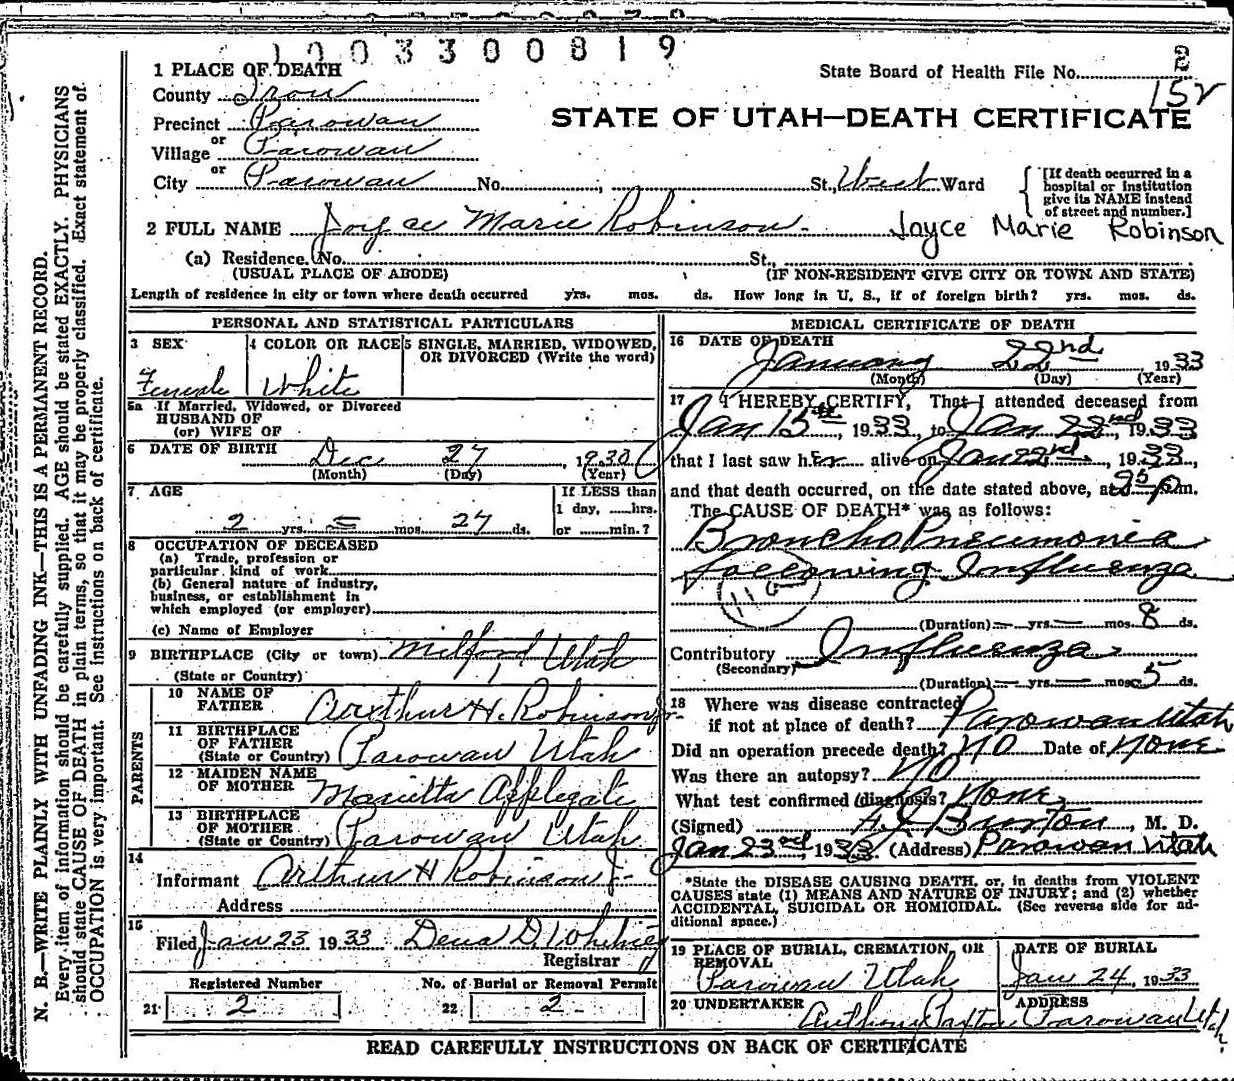 1003300819
1 PLACE OF DEATH
State Board of Health File No. 2
152
County Iron
STATE OF UTAH—DEATH CERTIFICATE
Precinct Parowan
or
Village Parowan
or
City Parowan No. , St., West Ward
[If death occurred in a
hospital or institution
give its NAME instead
of street and number.]
2 FULL NAME Joyce Marie Robinson. Joyce Marie Robinson
(a) Residence. No. St.,
(USUAL PLACE OF ABODE) (IF NON-RESIDENT GIVE CITY OR TOWN AND STATE)
Length of residence in city or town where death occurred yrs. mos. ds. How long in U. S., if of foreign birth? yrs. mos. ds.
PERSONAL AND STATISTICAL PARTICULARS
3 SEX
Female
4 COLOR OR RACE
White
5 SINGLE, MARRIED, WIDOWED,
OR DIVORCED (Write the word)
5a If Married, Widowed, or Divorced
HUSBAND OF
(or) WIFE OF
6 DATE OF BIRTH
Dec 27, 1930
(Month) (Day) (Year)
7 AGE
2 yrs. — mos. 27 ds.
If LESS than
1 day, ......hrs.
or ........min.?
8 OCCUPATION OF DECEASED
(a) Trade, profession or
particular kind of work
(b) General nature of industry,
business, or establishment in
which employed (or employer)
(c) Name of Employer
9 BIRTHPLACE (City or town) Milford, Utah
(State or Country)
PARENTS
10 NAME OF
FATHER Aarthur H. Robinson Jr-
11 BIRTHPLACE
OF FATHER
(State or Country) Parowan Utah
12 MAIDEN NAME
OF MOTHER Marietta Applegate
13 BIRTHPLACE
OF MOTHER
(State or Country) Parowan Utah
14
Informant Arthur H Robinson Jr-
Address
15
Filed Jan 23 1933 Dena D. Whitney
Registrar
Registered Number No. of Burial or Removal Permit
21 2 22 2-
MEDICAL CERTIFICATE OF DEATH
16 DATE OF DEATH
January 22nd 1933
(Month) (Day) (Year)
17 I HEREBY CERTIFY, That I attended deceased from
Jan 15th, 1933, to Jan 22nd, 1933
that I last saw her alive on Jan 22nd, 1933,
and that death occurred, on the date stated above, at p.m.
The CAUSE OF DEATH* was as follows:
Broncho Pneumonia
following Influenza
(Duration) — yrs. — mos. 8 ds.
Contributory Influenza
(Secondary)
(Duration) — yrs. — mos. 5 ds.
18 Where was disease contracted
if not at place of death? Parowan Utah
Did an operation precede death? NO Date of None
Was there an autopsy? NO
What test confirmed diagnosis? None
(Signed) Burton, M. D.
Jan 23rd, 1933. (Address) Parowan Utah
*State the DISEASE CAUSING DEATH, or, in deaths from VIOLENT
CAUSES state (1) MEANS AND NATURE OF INJURY; and (2) whether
ACCIDENTAL, SUICIDAL OR HOMICIDAL. (See reverse side for ad-
ditional space.)
19 PLACE OF BURIAL, CREMATION, OR
REMOVAL
Parowan Utah
DATE OF BURIAL
Jan 24, 1933
20 UNDERTAKER
Anthony Paxton
ADDRESS
Parowan Utah
READ CAREFULLY INSTRUCTIONS ON BACK OF CERTIFICATE
N. B.—WRITE PLAINLY WITH UNFADING INK—THIS IS A PERMANENT RECORD.
Every item of information should be carefully supplied. AGE should be stated EXACTLY. PHYSICIANS
should state CAUSE OF DEATH in plain terms, so that it may be properly classified. Exact statement of
OCCUPATION is very important. See instructions on back of certificate.